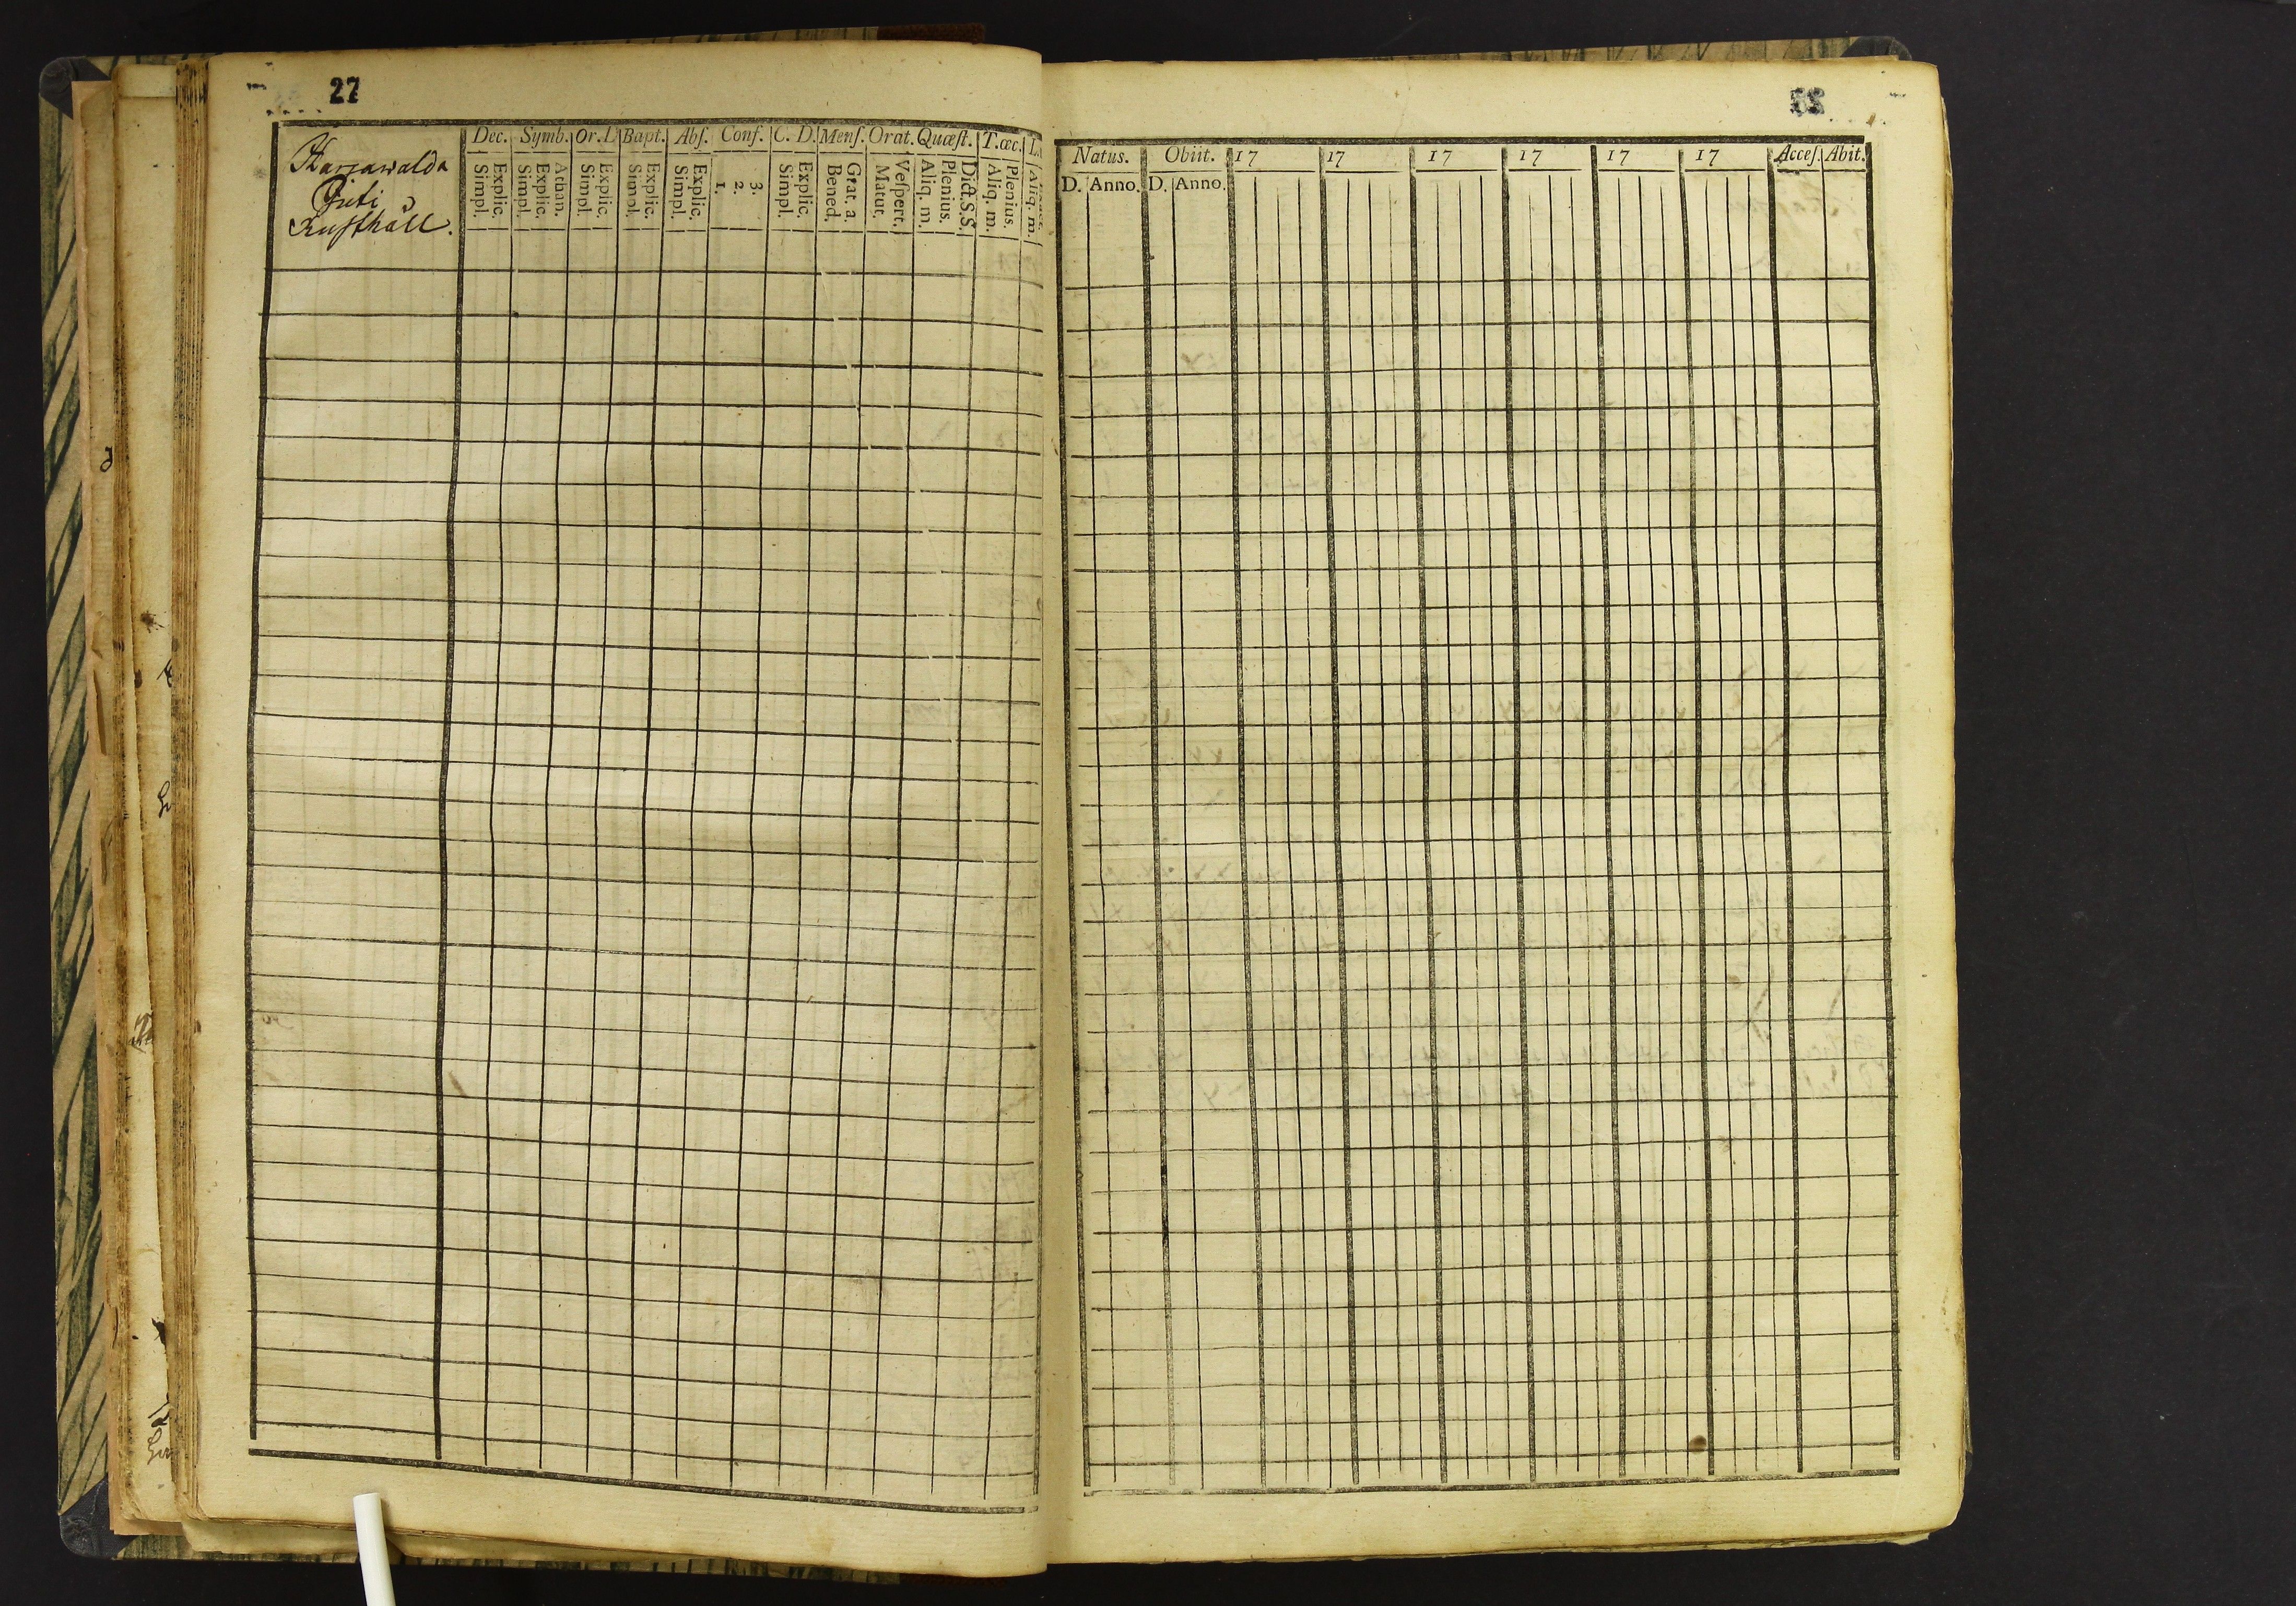 27
Harjawalda
Rusthåll.
Dec. Symb. Or. L Bapt. Abſ. Conf. C. D. Menſ. Orat. Quæſt. T. œc.
Explic. Simpl. Athan. Explic. Simpl. Explic. Simpl. Explic. Simpl. Explic. Simpl. 3. 2. 1. Explic. Simpl. Grat. a. Bened. Veſpert. Matut. Dict. S. S. Plenius. Aliq. m. Plenius. Aliq. m. Aliq. m.
Natus. Obiit. 17 17 17 17 17 17 Acceſ. Abit.
D. Anno. D. Anno.